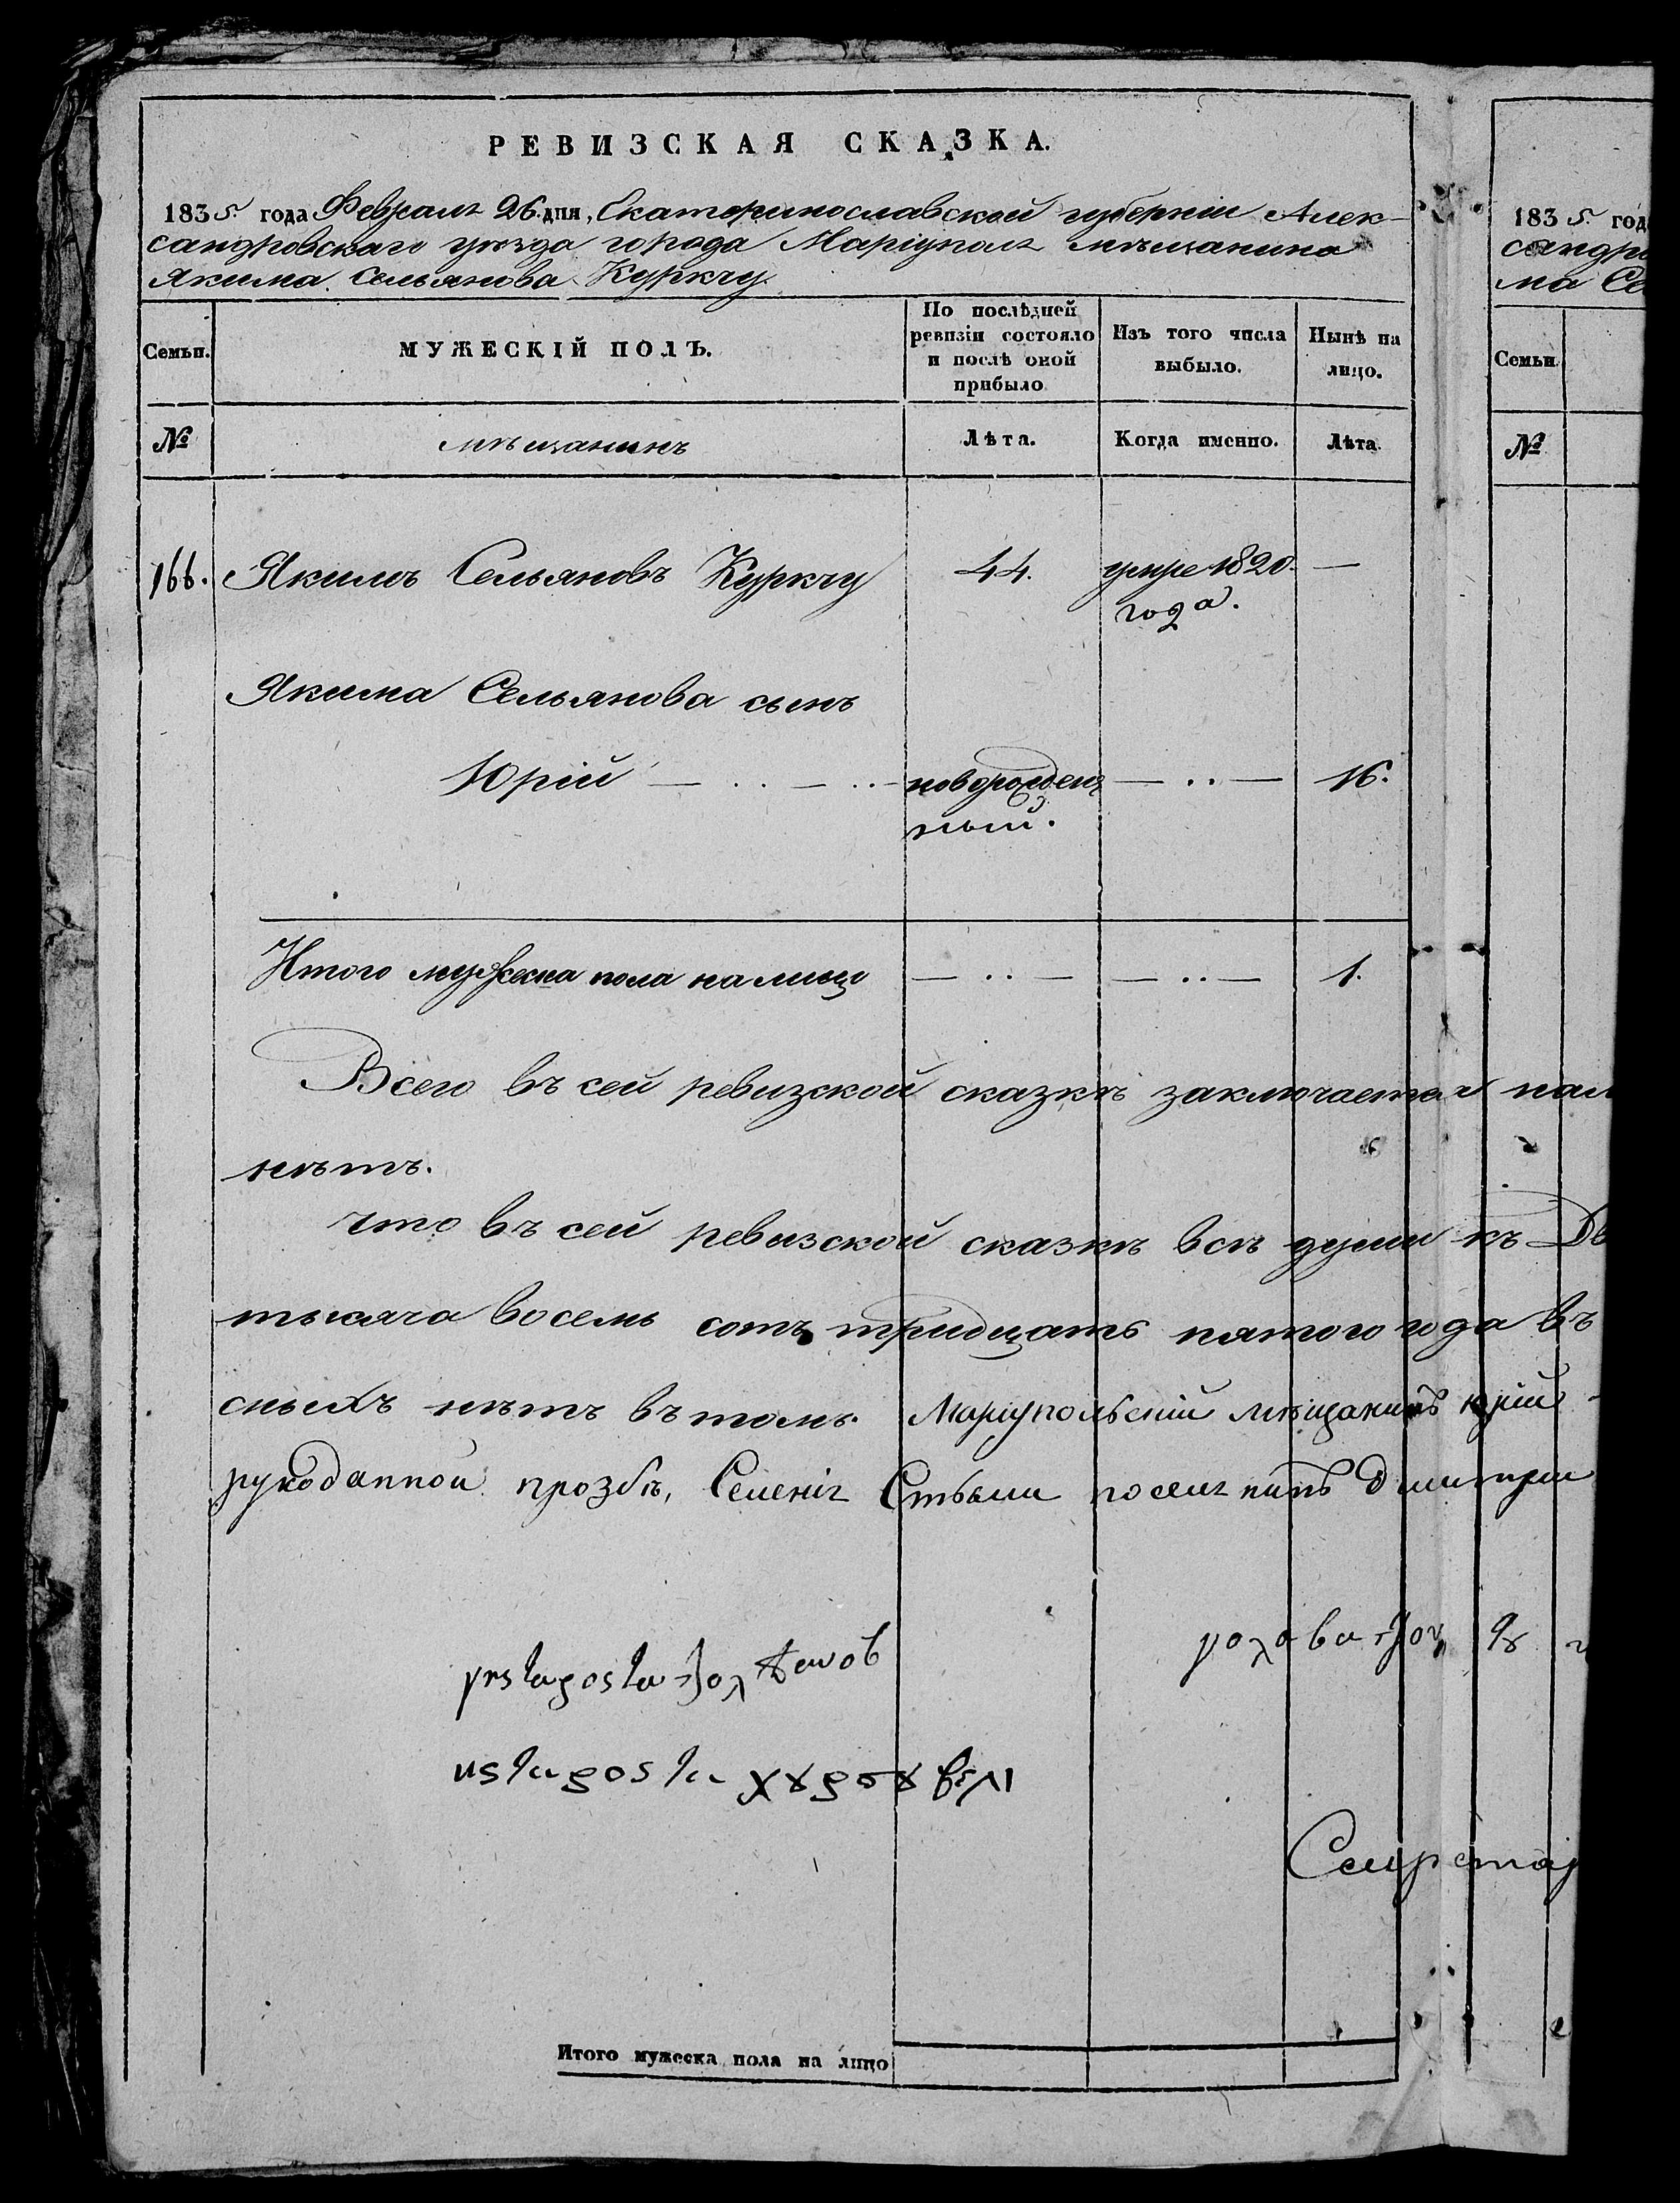 РЕВИЗСКАЯ СКАЗКА.
1835. года Февраля 26. дня, Екатеринославской губерніи Алек-
сандровскаго уѣзда города Маріуполя мѣщанина
Якима Сельянова Куркчу.
Семьи. МУЖЕСКІЙ ПОЛЪ. По послѣдней ревизіи состояло и послѣ оной прибыло Изъ того числа выбыло. Нынѣ на лицо.
№ мѣщанинъ Лѣта. Когда именно. Лѣта.
166. Якимъ Сельяновъ Куркчу 44. умре 1820. —
года.
Якима Сельянова сынъ
Юрій — .. — .. — новорожден — .. — 16.
ный.
Итого мужеска пола налицо — .. — — .. — 1.
Всего въ сей ревизской сказкѣ заключается нали
нѣтъ.
Что въ сей ревизской сказкѣ всѣ души къ Дв
тысяча восемь сотъ тридцать пятого года въ
сныхъ нѣтъ въ томъ. Маріупольскій мѣщанинъ Юрій
рукоданной прозбѣ, Димитрій
Секретар
Итого мужеска пола на лицо
1835 год
сандро
ма Се
Семьи
№